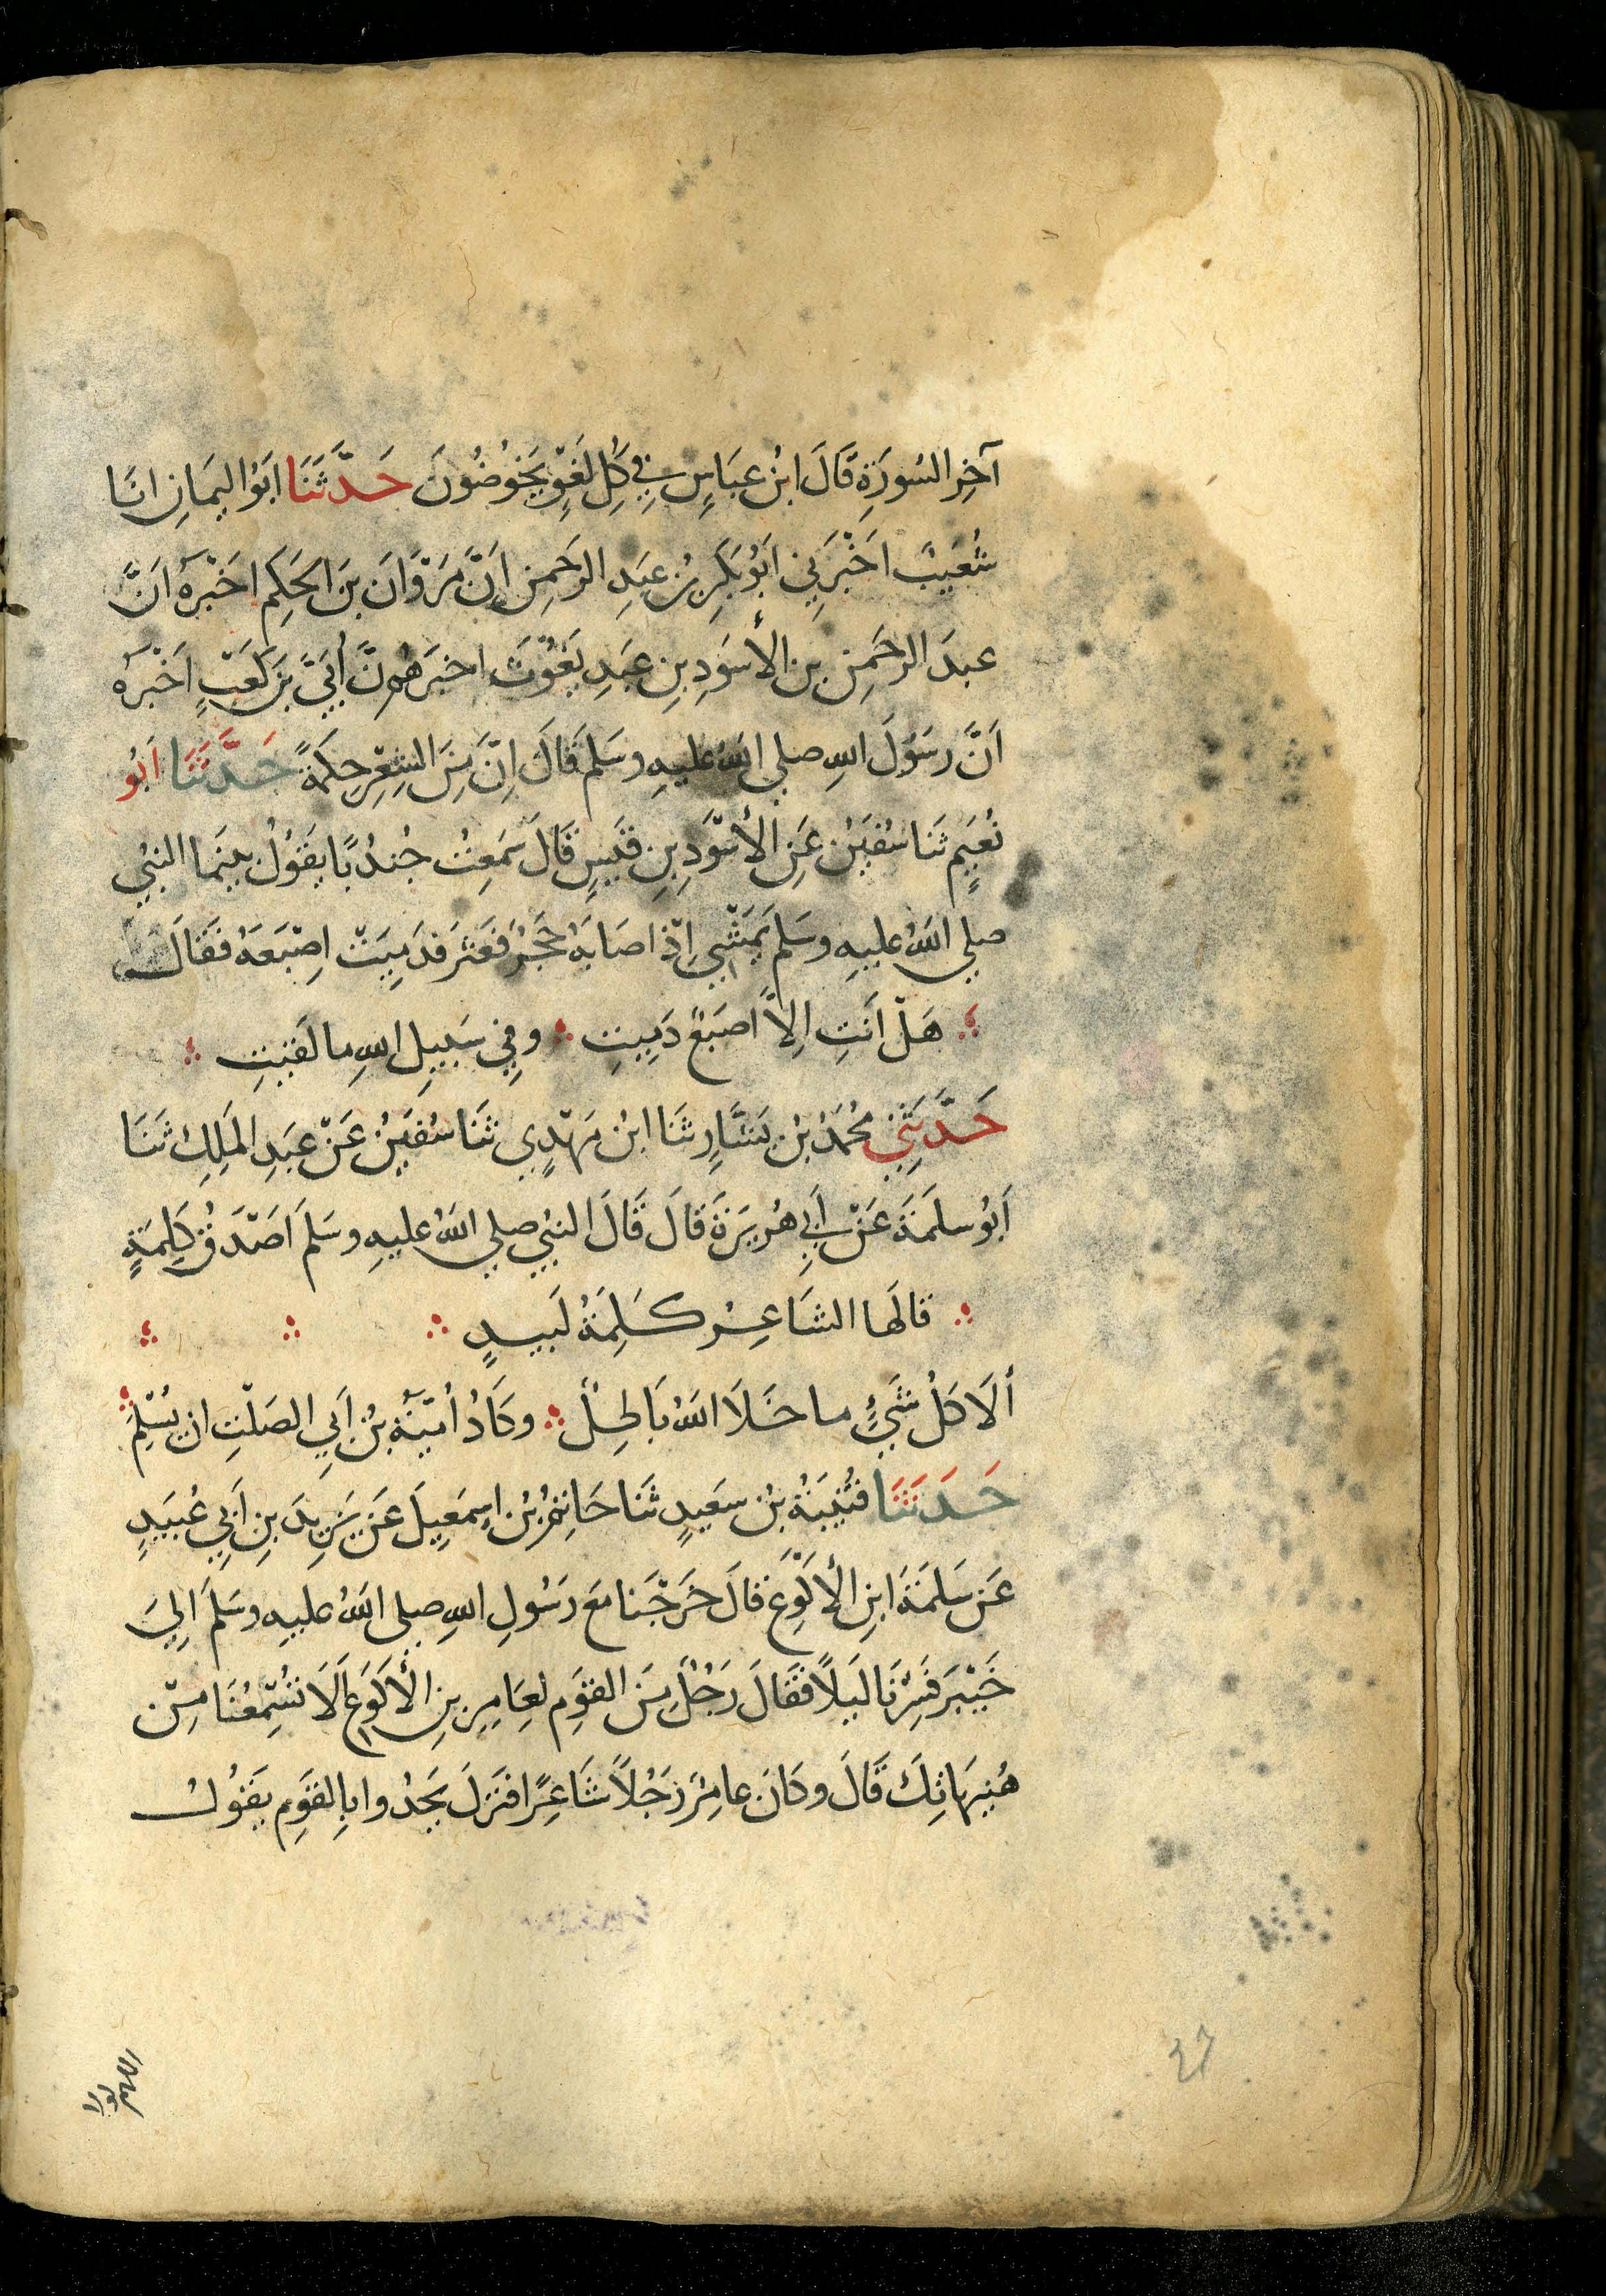 آخِر السُورَةِ قَالَ ابْنُ عبَاسٍ فِي كُلِ لَغْوٍ يَخُوضُونَ حَدَّثَنَا ابَوُ اليَمَانِ انَا
شُعَيبٌ اخْبَرَنِي ابَوُ بَكرِ بنُ عبَدِ الرحَمنِ اَنَّ مَرْوَانَ بنَ الحَكِمَ اخَبْرهُ انَّ
عبدَ الرحَمنِ بن الأسَودِ بنِ عَبدِ يَغُوثَ اخبَرهُ انَّ أُبَيَّ بنَ كَعْبٍ اَخْبَرهُ
اَنَّ رسَوُلَ اللهِ صلي اللهُ عليهِ وسَلمَ قَالَ اِنَّ مِنَ الشِعْرِ حِكمَةً حَدَّثَنَا ابَوُ
نُعَيمٍ ثَنا سُفيَنُ عَنِ الأسْوَدِ بنِ قَيسٍ قَالَ سَمِعْتُ جُندُبًا يقَوُلُ بيَنمَا النبيُ
صلي اللهُ عليهِ وسَلمَ يَمْشِي اِذْ اصَابَهُ حَجَرٌ فَعَثرَ فدَمِيَتْ اِصْبَعَهُ فَقَالَ
هَلْ اَنتِ اِلاَّ اصَبعٌ دَمِيتِ وفِي سَبيِلِ اللهِ ما لَقيتِ
حَدَّثَنِي مُحَمَدُ بْنُ بَشَّارٍ ثنَا ابنُ مَهْدِي ثَنَا سُفيَنُ عَنْ عبَدِ المَلِكِ ثَنَا
اَبُو سلَمَةَ عَنْ اَبِي هُريرَةَ قَالَ قَالَ النبيُ صلي اللهُ عليهِ وسَلمَ اَصْدَقُ كَلِمَةٍ
قالَها الشَاعِرُ كَلِمَةُ لَبيدٍ
ألَا كلُ شَيْءٍ ما خَلَا اللهُ بَاطِلُ وكَادُ أُميَّةُ بْنُ اَبي الصَلْتِ ان يُسْلِمَ
حَدَثَنَا قُتَيبَةُ بْنُ سعَيدٍ ثنَا حَاتمُ بْنُ اسِمَعِيلَ عَن يَزِيدَ بنِ اَبِي عُبَيدٍ
عَن سَلمَةَ ابنِ الأكَوعَ قالَ خَرَجْنَا معَ رسَوُلِ اللهِ صلى اللهُ عليهِ وسَلمَ الِيَ
خَيْبَرَ فَسِرْنَا لَيلًا فقَالَ رَجُلٌ مِنَ القوَمِ لعِامِرِ بنِ الأكَوعَ اَلَا تُسْمِعُنَا مِنْ
هُنَيهَاتِكَ قَالَ وكَانَ عامِرٌ رَجُلًا شَاعِرًا فنَزلَ يَحدُوا بِالقوَمِ يقَوُلُ
اللهم لولا